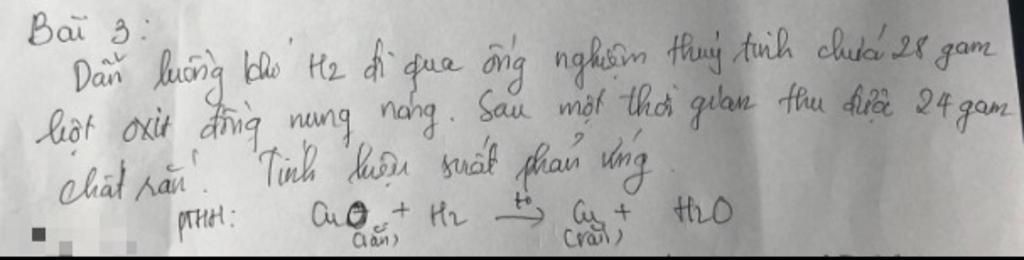 Bài 3:
Dẫn luồng khí H2 đi qua ống nghiệm thuỷ tinh chứa 28 gam
bột oxit đồng nung nóng. Sau một thời gian thu được 24 gam
chất rắn. Tính hiệu suất phản ứng.
PTHH: CuO + H2 t° → Cu + H2O
(rắn) (rắn)